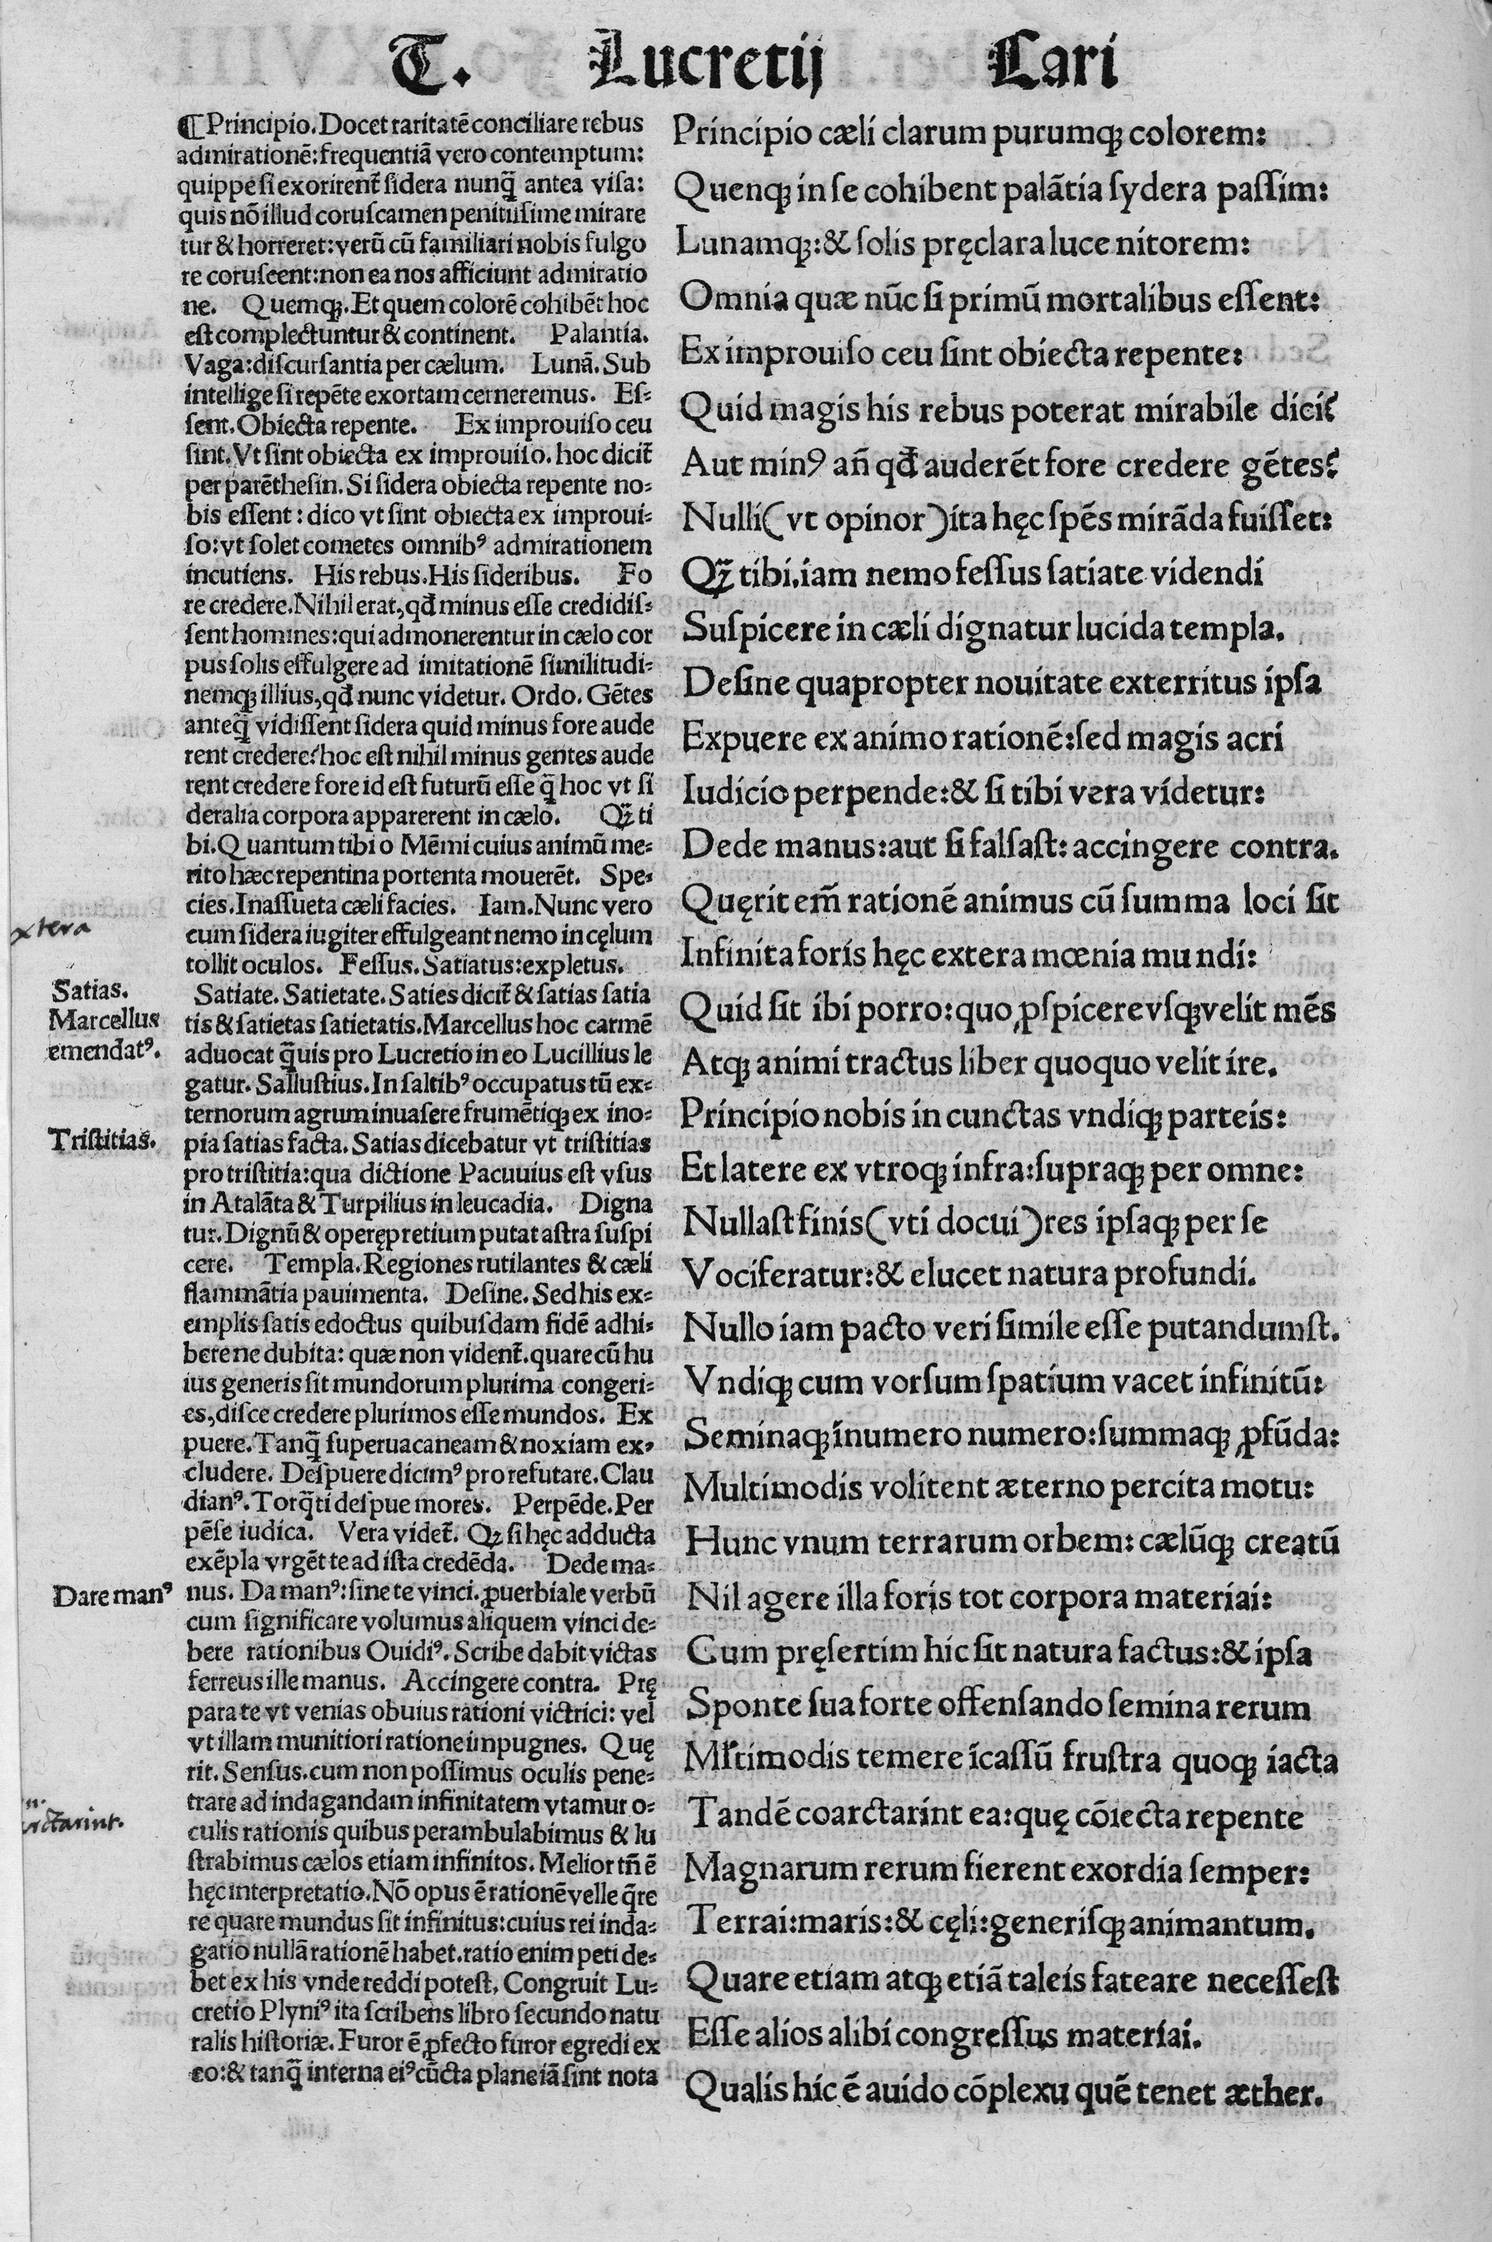 T. Lucretij Cari
¶Principio. Docet raritatē conciliare rebus
admirationē: frequentiā vero contemptum:
quippe si exorirent᷑ sidera nunq̄ antea visa:
quis nō illud coruscamen penitissime mirare
tur & horreret: verū cū familiari nobis fulgo
re coruscent: non ea nos afficiunt admiratio
ne. Quemqꝫ. Et quem colorē cohibēt hoc
est complectuntur & continent. Palantia.
Vaga: discursantia per cælum. Lunā. Sub
intellige si repēte exortam cerneremus. Es-
sent. Obiecta repente. Ex improuiso ceu
sint. Vt sint obiecta ex improuiso. hoc dicit᷑
per parēthesin. Si sidera obiecta repente no-
bis essent: dico vt sint obiecta ex improui-
so: vt solet cometes omnibꝰ admirationem
incutiens. His rebus. His sideribus. Fo
re credere. Nihil erat, qđ minus esse credidis-
sent homines: qui admonerentur in cælo cor
pus solis effulgere ad imitationē similitudi-
nemqꝫ illius, qđ nunc videtur. Ordo. Gētes
anteq̄ vidissent sidera quid minus fore aude
rent credere? hoc est nihil minus gentes aude
rent credere fore id est futurū esse q̄ hoc vt si
deralia corpora apparerent in cælo. Qꝫ ti
bi. Quantum tibi o Mēmi cuius animū me-
rito hæc repentina portenta mouerēt. Spe-
cies. Inassueta cæli facies. Iam. Nunc vero
cum sidera iugiter effulgeant nemo in cęlum
tollit oculos. Fessus. Satiatus: expletus.
Satiate. Satietate. Saties dicit᷑ & satias satia
tis & satietas satietatis. Marcellus hoc carmē
aduocat q̄uis pro Lucretio in eo Lucillius le
gatur. Sallustius. In saltibꝰ occupatus tū ex-
ternorum agrum inuasere frumētiqꝫ ex ino-
pia satias facta. Satias dicebatur vt tristitias
pro tristitia: qua dictione Pacuuius est vsus
in Atalāta & Turpilius in leucadia. Digna
tur. Dignū & operępretium putat astra suspi
cere. Templa. Regiones rutilantes & cæli
flammātia pauimenta. Desine. Sed his ex-
emplis satis edoctus quibusdam fidē adhi-
bere ne dubita: quæ non vident᷑. quare cū hu
ius generis sit mundorum plurima congeri-
es, disce credere plurimos esse mundos. Ex
puere. Tanq̄ superuacaneam & noxiam ex-
cludere. Despuere dicimꝰ pro refutare. Clau
dianꝰ. Torq̄ti despue mores. Perpēde. Per
pēse iudica. Vera videt᷑. Qꝫ si hęc adducta
exēpla vrgēt te ad ista credēda. Dede ma-
nus. Da manꝰ: sine te vinci. ꝓuerbiale verbū
cum significare volumus aliquem vinci de-
bere rationibus Ouidiꝰ. Scribe dabit victas
ferreus ille manus. Accingere contra. Prę
para te vt venias obuius rationi victrici: vel
vt illam munitiori ratione impugnes. Quę
rit. Sensus. cum non possimus oculis pene-
trare ad indagandam infinitatem vtamur o-
culis rationis quibus perambulabimus & lu
strabimus cælos etiam infinitos. Melior tñ ē
hęc interpretatio. Nō opus ē rationē velle q̄re
re quare mundus sit infinitus: cuius rei inda-
gatio nullā rationē habet. ratio enim peti de-
bet ex his vnde reddi potest, Congruit Lu-
cretio Plyniꝰ ita scribens libro secundo natu
ralis historiæ. Furor ē ꝓfecto furor egredi ex
eo: & tanq̄ interna eiꝰ cūcta plane iā sint nota
xtera
Satias.
Marcellus
emendatꝰ.
Tristitias.
Dare manꝰ
Principio cæli clarum purumqꝫ colorem:
Quenqꝫ in se cohibent palātia sydera passim:
Lunamqꝫ: & solis pręclara luce nitorem:
Omnia quæ nūc si primū mortalibus essent:
Ex improuiso ceu sint obiecta repente:
Quid magis his rebus poterat mirabile dici?
Aut minꝰ añ qđ auderēt fore credere gētes?
Nulli (vt opinor) ita hęc spēs mirāda fuisset:
Qꝫ tibi. iam nemo fessus satiate videndi
Suspicere in cæli dignatur lucida templa.
Desine quapropter nouitate exterritus ipsa
Expuere ex animo rationē: sed magis acri
Iudicio perpende: & si tibi vera videtur:
Dede manus: aut si falsast: accingere contra.
Quęrit em̄ rationē animus cū summa loci sit
Infinita foris hęc extera mœnia mundi:
Quid sit ibi porro: quo ꝓspicere vsqꝫ velit mēs
Atqꝫ animi tractus liber quoquo velit ire.
Principio nobis in cunctas vndiqꝫ parteis:
Et latere ex vtroqꝫ infra: supraqꝫ per omne:
Nullast finis (vti docui) res ipsaqꝫ per se
Vociferatur: & elucet natura profundi.
Nullo iam pacto veri simile esse putandumst.
Vndiqꝫ cum vorsum spatium vacet infinitū:
Seminaqꝫ īnumero numero: summaqꝫ ꝓfūda:
Multimodis volitent æterno percita motu:
Hunc vnum terrarum orbem: cælūqꝫ creatū
Nil agere illa foris tot corpora materiai:
Cum pręsertim hic sit natura factus: & ipsa
Sponte sua forte offensando semina rerum
Mꝉtimodis temere īcassū frustra quoqꝫ iacta
Tandē coarctarint ea: quę cōiecta repente
Magnarum rerum fierent exordia semper:
Terrai: maris: & cęli: generisqꝫ animantum.
Quare etiam atqꝫ etiā taleis fateare necessest
Esse alios alibi congressus materiai.
Qualis hic ē auido cōplexu quē tenet æther.